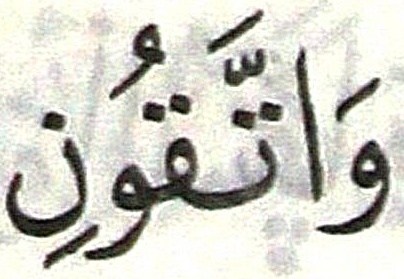 وَاتَّقُونِ